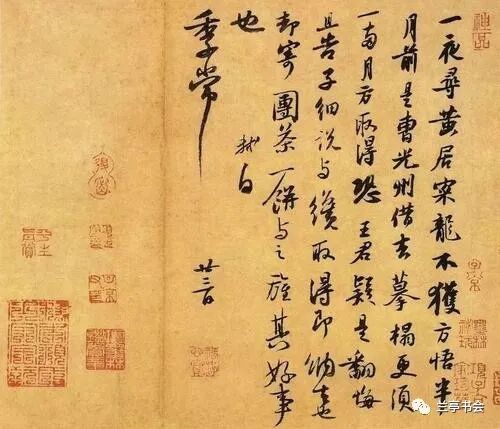 一夜尋黄居寀龍不獲方悟半
月前是曹光州借去摹搨更須
一兩月方取得恐王君疑是翻悔
且告子細說與纔取得即納去也
却寄團茶一餅與之旌其好事
也
軾白
季常
廿三日
神品
兰亭书会